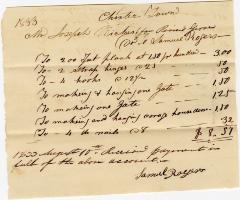 1833 Chester Town
Mr Joseph Rickerson Round Grove
Dr to Samuel Rogers
To 200 feet plank at 1.50 pr hundred 3.00
To 2 Strap hinges 25 50
To 4 hooks @ 12½ 50
To making & hanging one Gate 1.50
To making one Gate 1.25
To making and hanging door 1.50
To 4 lb nails @ 8 32
$8.57
1833 August 10th Received payment in
full of the above account
Samuel Rogers